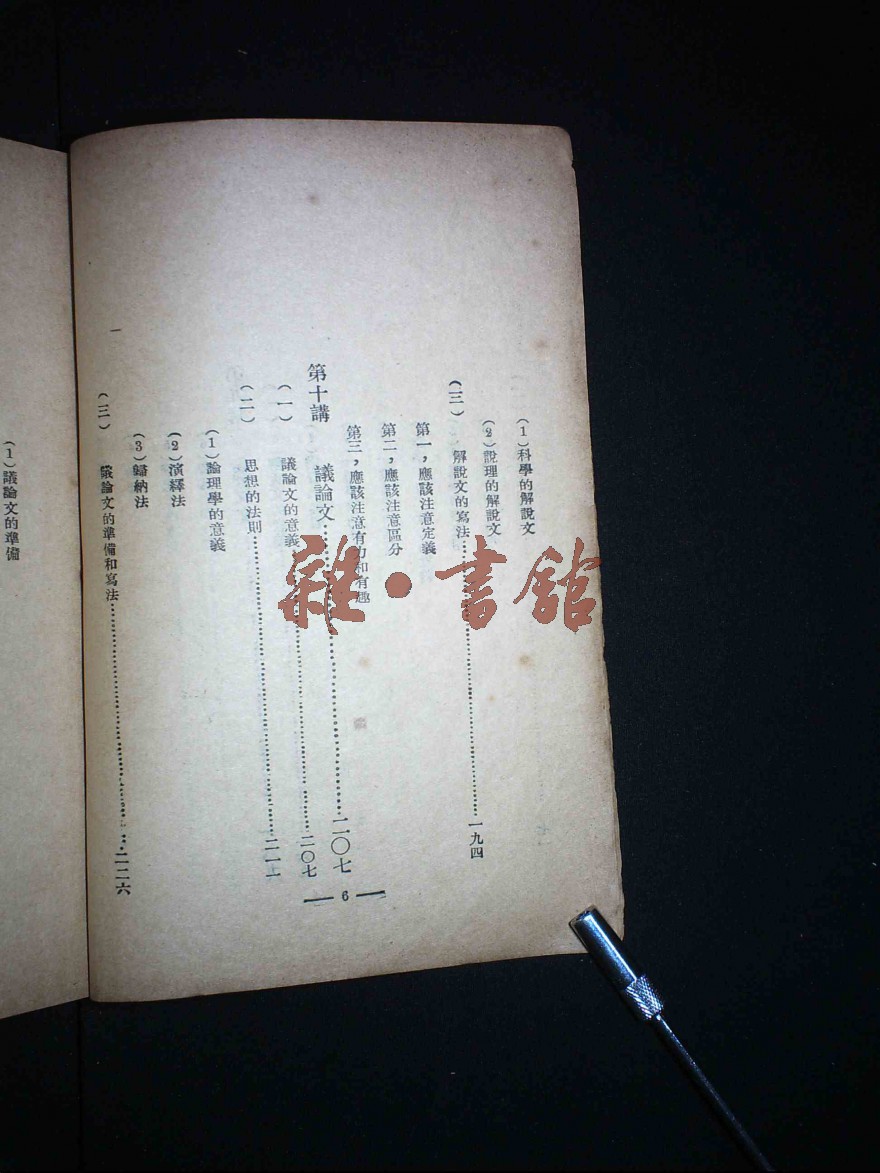 (1)科學的解說文
(2)說理的解說文
(三) 解說文的寫法……一九四
第一，應該注意定義
第二，應該注意區分
第三，應該注意有力和有趣
第十講 議論文……二〇七
(一) 議論文的意義……二〇七
(二) 思想的法則……二一一
(1)論理學的意義
(2)演繹法
(3)歸納法
(三) 議論文的準備和寫法……二二六
— 6 —
(1)議論文的準備
雜·書館